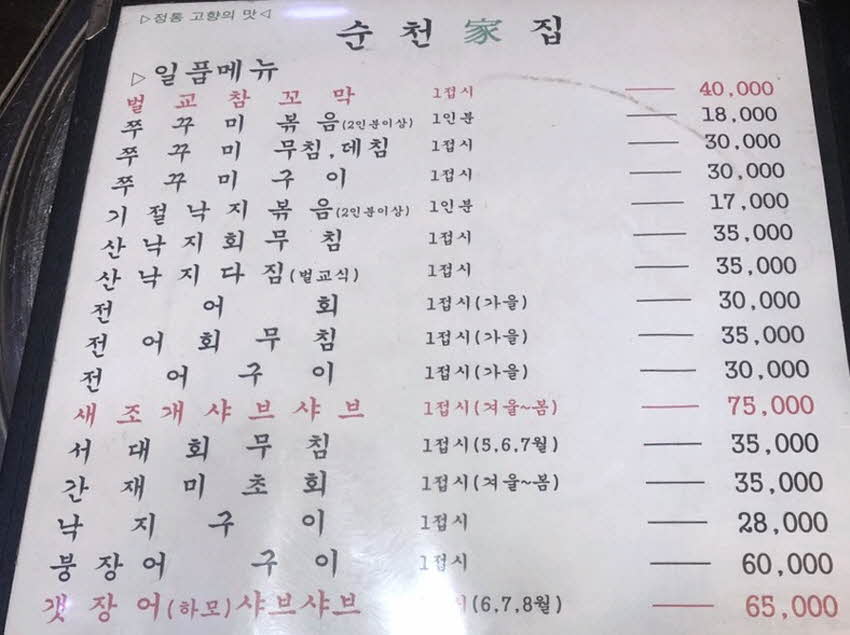 ▷정통 고향의 맛◁
순천家집
▷일품메뉴
벌교참꼬막 1접시 — 40,000
쭈꾸미볶음(2인분이상) 1인분 — 18,000
쭈꾸미무침,데침 1접시 — 30,000
쭈꾸미구이 1접시 — 30,000
기절낙지볶음(2인분이상) 1인분 — 17,000
산낙지회무침 1접시 — 35,000
산낙지다짐(벌교식) 1접시 — 35,000
전어회 1접시(가을) — 30,000
전어회무침 1접시(가을) — 35,000
전어구이 1접시(가을) — 30,000
새조개샤브샤브 1접시(겨울~봄) — 75,000
서대회무침 1접시(5,6,7월) — 35,000
간재미초회 1접시(겨울~봄) — 35,000
낙지구이 1접시 — 28,000
붕장어 구이 1접시 — 60,000
갯장어(하모)샤브샤브 (6,7,8월) — 65,000